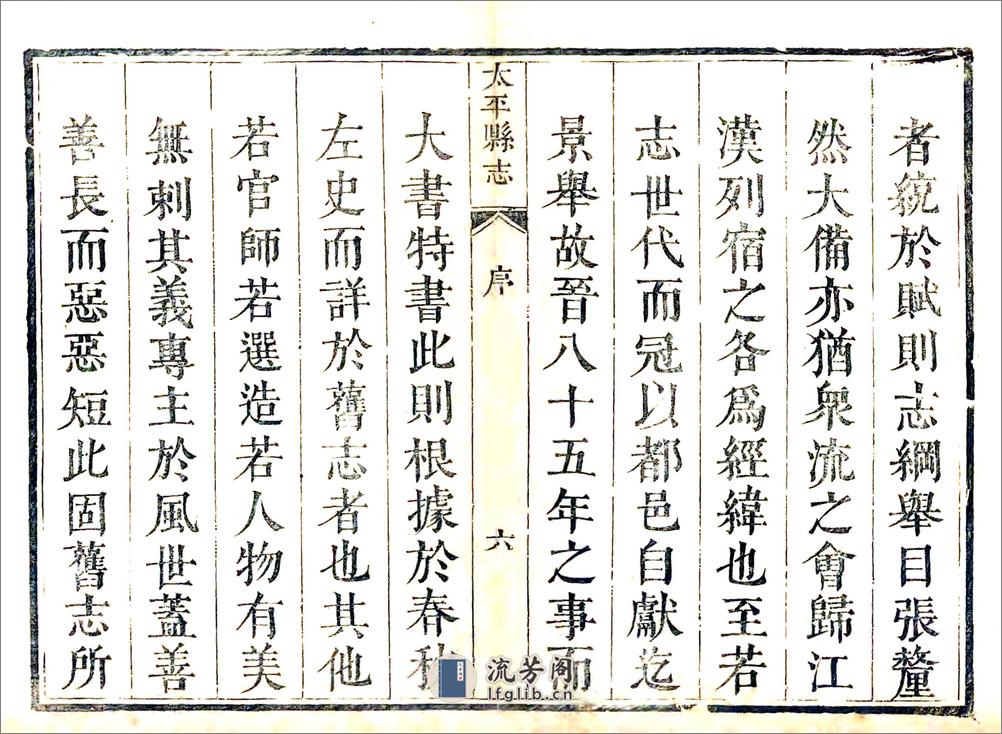 者統於賦則志綱舉目張釐
然大備亦猶衆流之會歸江
漢列宿之各爲經緯也至若
志世代而冠以都邑自獻迄
景舉故晉八十五年之事而
太平縣志
序
六
大書特書此則根據於春秋
左史而詳於舊志者也其他
若官師若選造若人物有美
無刺其義專主於風世蓋善
善長而惡惡短此固舊志所
流芳阁
lfglib.cn